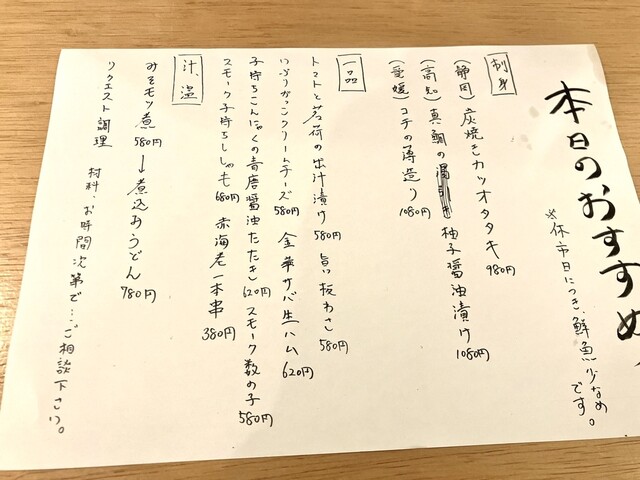 本日のおすすめ
※休市日につき、鮮魚少なめです。
刺身
(静岡) 炭焼きカツオタタキ 980円
(高知) 真鯛の柚子醤油漬け 1080円
(愛媛) コチの薄造り 1080円
一品
トマトと茗荷の出汁漬け 580円 旨い板わさ 580円
いぶりがっこクリームチーズ 580円 金華サバ生ハム 620円
子持ちこんにゃくの青唐醤油たたき 620円 スモーク数の子 580円
スモーク子持ちししゃも 680円 赤海老一本串 380円
汁、温
みそモツ煮 580円 → 煮込みうどん 780円
リクエスト調理 材料、お時間次第で…ご相談下さい。